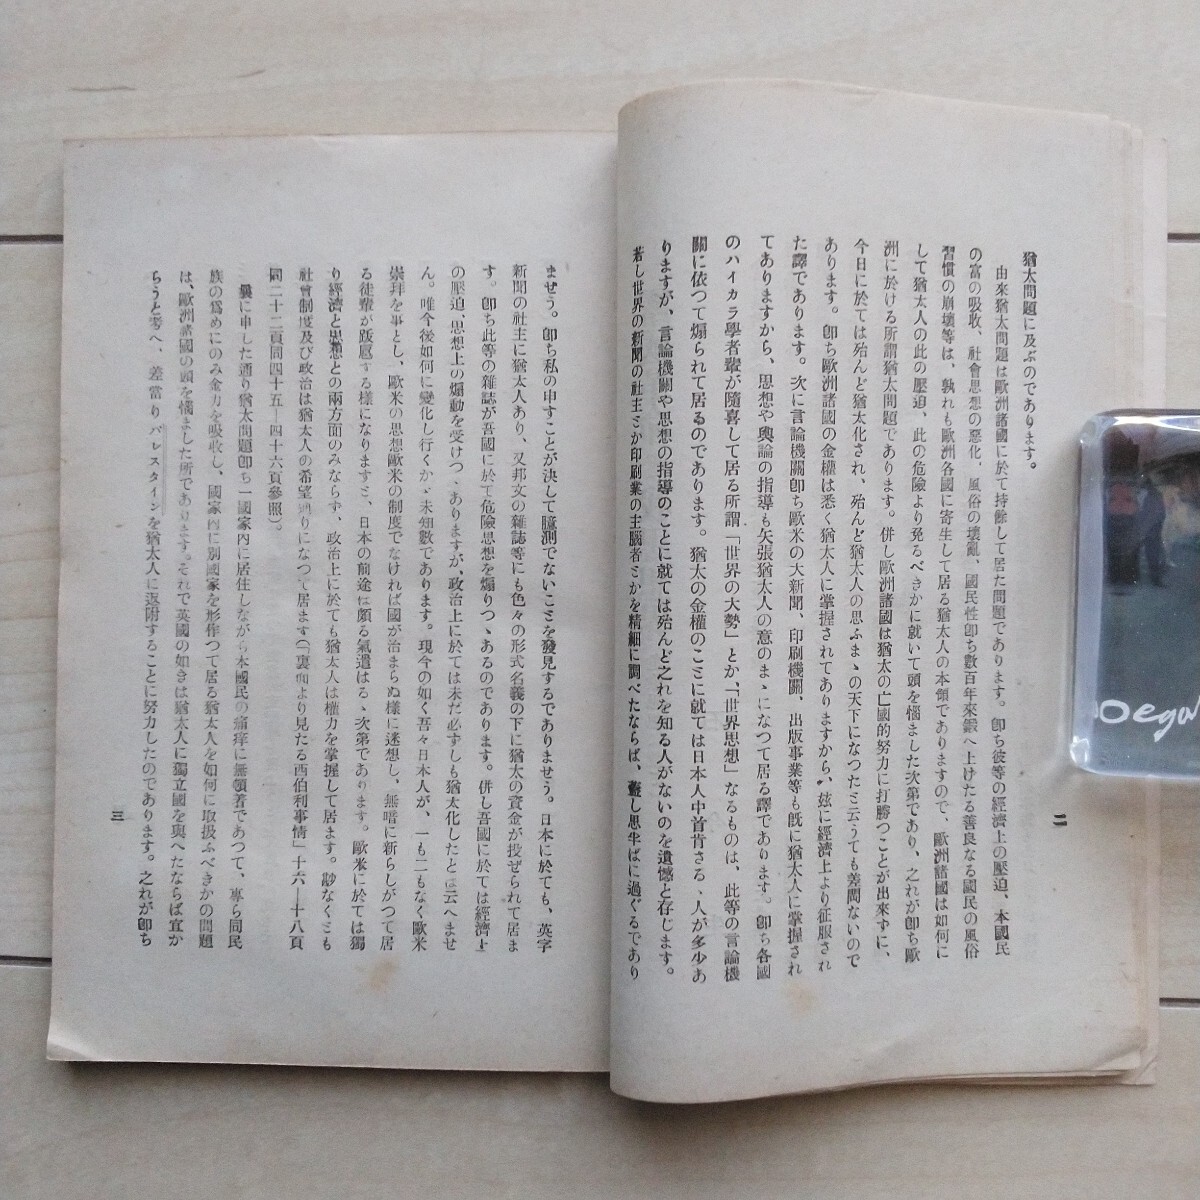 猶太問題に及ぶのであります。
由來猶太問題は歐洲諸國に於て持餘して居た問題であります。卽ち彼等の經濟上の壓迫、本國民
の富の吸收、社會思想の惡化、風俗の壞亂、國民性卽ち數百年來鍛へ上けたる善良なる國民の風俗
習慣の崩壞等は、孰れも歐洲各國に寄生して居る猶太人の本領でありますので、歐洲諸國は如何に
して猶太人の此の壓迫、此の危險より免るべきかに就いて頭を惱ました次第であり、之れが卽ち歐
洲に於ける所謂猶太問題であります。併し歐洲諸國は猶太の亡國的努力に打勝つことが出來ずに、
今日に於ては殆んど猶太化され、殆んど猶太人の思ふまゝの天下になつたミ云うても差閊ないので
あります。卽ち歐洲諸國の金權は悉く猶太人に掌握されてありますから、玆に經濟上より征服され
た譯であります。次に言論機關卽ち歐米の大新聞、印刷機關、出版事業等も旣に猶太人に掌握され
てありますから、思想や輿論の指導も矢張猶太人の意のまゝになつて居る譯であります。卽ち各國
のハイカラ學者輩が隨喜して居る所謂「世界の大勢」とか、「世界思想」なるものは、此等の言論機
關に依つて煽られて居るのであります。猶太の金權のこミに就ては日本人中首肯さるゝ人が多少あ
りますが、言論機關や思想の指導のことに就ては殆んど之れを知る人がないのを遺憾と存じます。
若し世界の新聞の社主ミか印刷業の主腦者ミかを精細に調べたならば、蓋し思半ばに過ぐるであり
二
ませう。卽ち私の申すことが決して臆測でないこミを發見するでありませう。日本に於ても、英字
新聞の社主に猶太人あり、又邦文の雜誌等にも色々の形式名義の下に猶太の資金が投ぜられて居ま
す。卽ち此等の雜誌が吾國に於て危險思想を煽りつゝあるのであります。併し吾國に於ては經濟上
の壓迫、思想上の煽動を受けつゝありますが、政治上に於ては未だ必ずしも猶太化したとは云へませ
ん。唯今後如何に變化し行くかゞ未知數であります。現今の如く吾々日本人が、一も二もなく歐米
崇拜を事とし、歐米の思想歐米の制度でなければ國が治まらぬ樣に迷想し、無暗に新らしがつて居
る徒輩が跋扈する樣になりますミ、日本の前途は頗る氣遣はるゝ次第であります。歐米に於ては獨
り經濟と思想との兩方面のみならず、政治上に於ても猶太人は權力を掌握して居ます。尠なくミも
社會制度及び政治は猶太人の希望通りになつて居ます(「裏面より見たる西伯利事情」十六―十八頁
同二十二頁同四十五―四十六頁參照)。
曩に申した通り猶太問題卽ち一國家內に居住しながら本國民の痛痒に無頓着であつて、專ら同民
族の爲めにのみ金力を吸收し、國家內に別國家を形作つて居る猶太人を如何に取扱ふべきかの問題
は、歐洲諸國の頭を惱ました所であります。それで英國の如きは猶太人に獨立國を與へたならば宜か
らうと考へ、差當りパレスタインを猶太人に返附することに努力したのであります。之れが卽ち
三